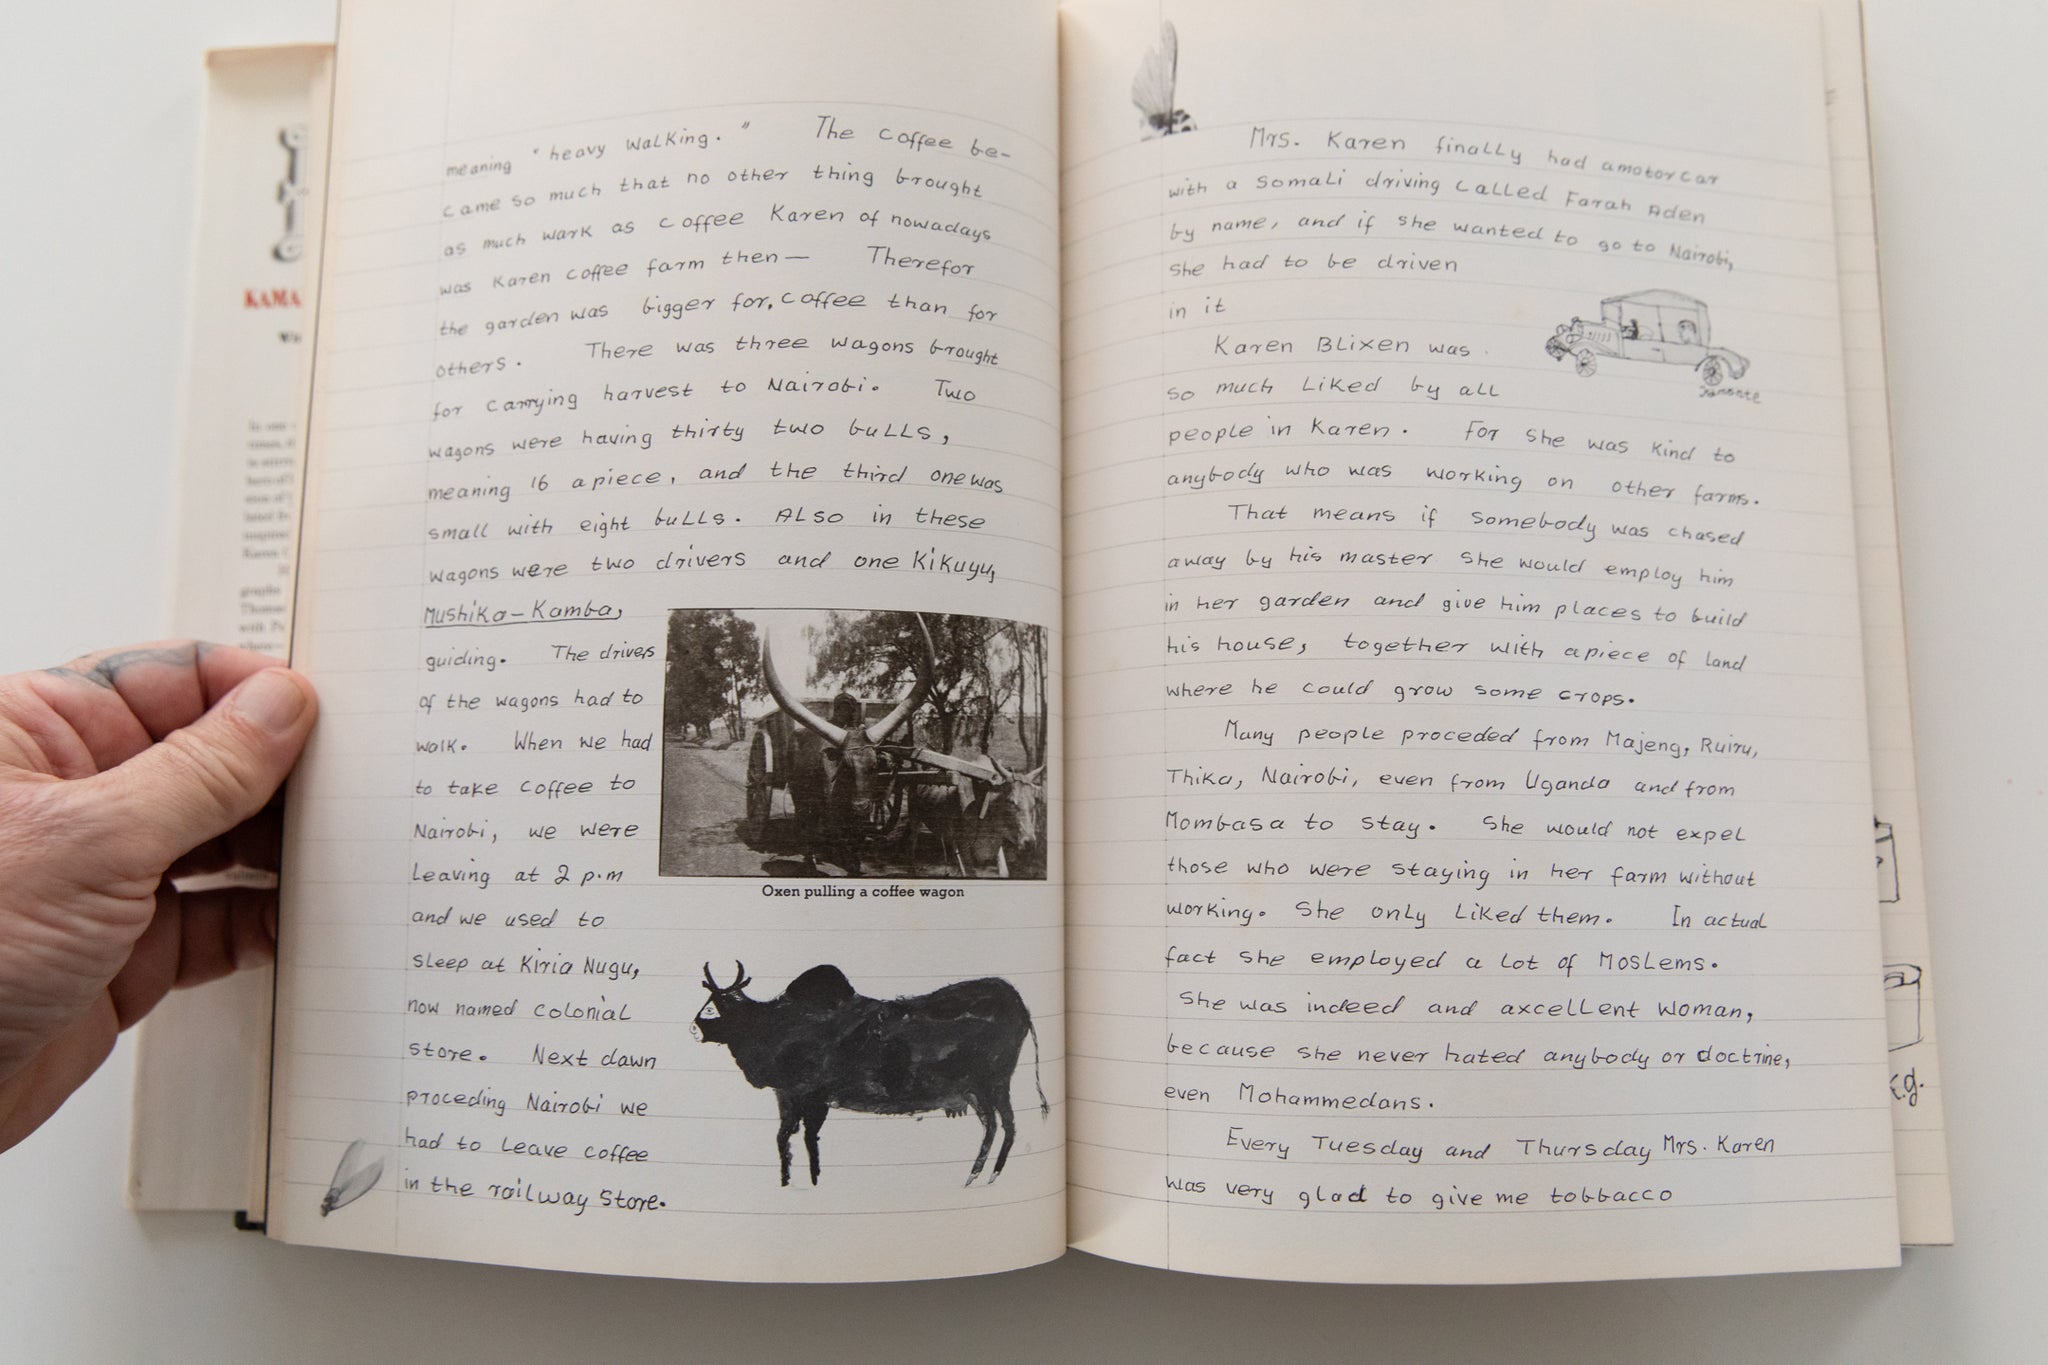 KAMA
meaning "heavy walking." The coffee be-
came so much that no other thing brought
as much wark as coffee Karen of nowadays
was Karen coffee farm then— Therefor
the garden was bigger for. coffee than for
others. There was three wagons brought
for carrying harvest to Nairobi. Two
wagons were having thirty two bulls,
meaning 16 apiece, and the third one was
small with eight bulls. Also in these
wagons were two drivers and one Kikuyu,
Mushika-Kamba,
guiding. The drivers
of the wagons had to
walk. When we had
to take coffee to
Nairobi, we were
Leaving at 2 p.m
and we used to
sleep at Kiria Nugu,
now named colonial
store. Next dawn
proceding Nairobi we
had to Leave coffee
in the railway store.
Oxen pulling a coffee wagon
Mrs. Karen finally had amotorcar
with a Somali driving called Farah Aden
by name, and if she wanted to go to Nairobi,
she had to be driven
in it
Kamante
Karen Blixen was
so much Liked by all
people in Karen. For she was kind to
anybody who was working on other farms.
That means if somebody was chased
away by his master she would employ him
in her garden and give him places to build
his house, together with apiece of land
where he could grow some crops.
Many people proceded from Majeng, Ruiru,
Thika, Nairobi, even from Uganda and from
Mombasa to stay. She would not expel
those who were staying in her farm without
working. She only Liked them. In actual
fact she employed a lot of Moslems.
She was indeed and axcellent woman,
because she never hated anybody or doctrine,
even Mohammedans.
Every Tuesday and Thursday Mrs. Karen
was very glad to give me tobbacco